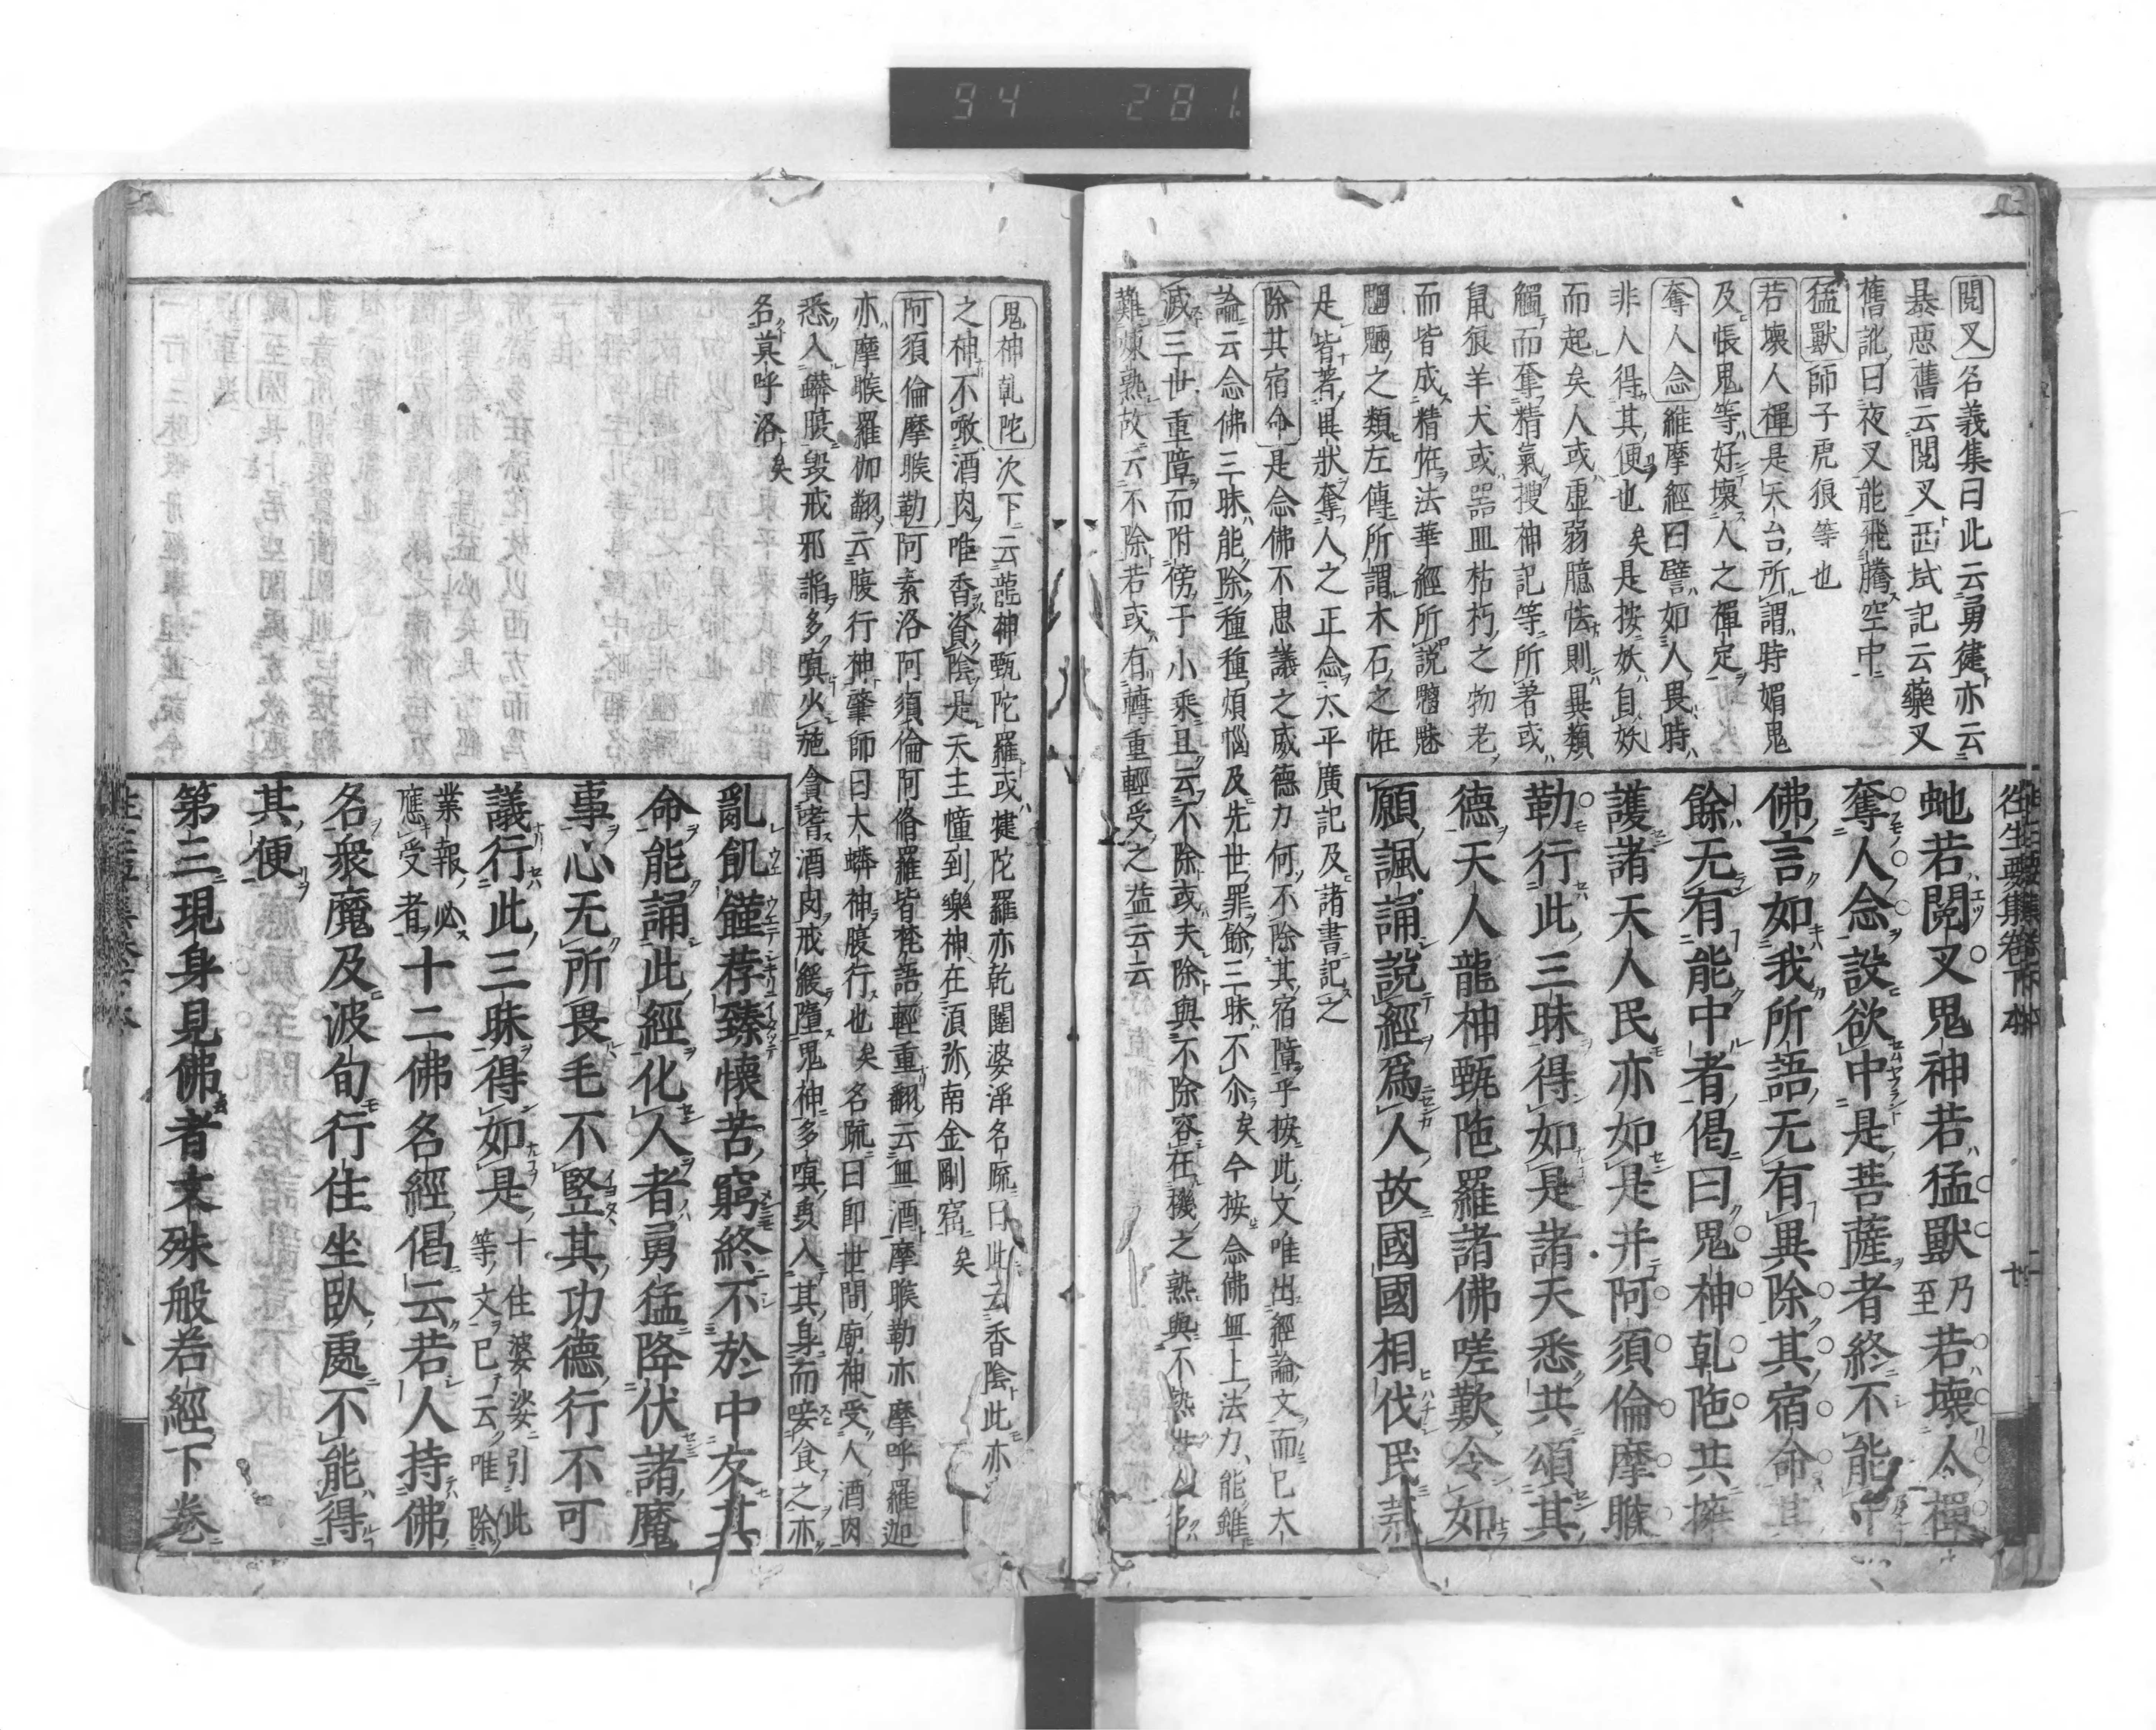 94 281
閲叉名義集曰此云勇健亦云
暴惡舊云閲叉西域記云藥叉
舊訛曰夜叉能飛騰空中
猛獸師子虎狼等也
若壞人禪是天台所謂時媚鬼
及悵鬼等好壞人之禪定
奪人念維摩經曰譬如人畏時
非人得其便也矣是按妖自妖
而起矣人或虛弱臆怯則異類
觸而奪精氣搜神記等所著或
鼠狼羊犬或器皿枯朽之物老
而皆成精恠法華經所說魑魅
魍魎之類左傳所謂木石之恠
是皆著異狀奪人之正念太平廣記及諸書記之
除其宿命是念佛不思議之威德力何不除其宿障乎按此文唯出經論文而已大
論云念佛三昧能除種種煩惱及先世罪餘三昧不尒矣今按念佛無上法力能雖
滅三世重障而附傍于小乘且云不除或夫除與不除容在機之熟與不熟
難煉熟故云不除若或有轉重輕受之益云云
往生要集卷下本
虵若閲叉鬼神若猛獸乃至若壞人禪
奪人念設欲中是菩薩者終不能中
佛言如我所語无有異除其宿命其
餘无有能中者偈曰鬼神乾陁共擁
護諸天人民亦如是并阿須倫摩睺
勒行此三昧得如是諸天悉共頌其
德天人龍神甄陁羅諸佛嗟歎令如
願諷誦說經爲人故國國相伐民
鬼神乾陀次下云龍神甄陀羅或揵陀羅亦乾闥婆淨名疏曰此云香陰此亦
之神不噉酒肉唯香資陰是天主幢到樂神在須弥南金剛窟矣
阿須倫摩睺勒阿素洛阿須倫阿脩羅皆梵語輕重翻云無酒摩睺勒亦摩呼羅迦
亦摩睺羅伽翻云腹行神肇師曰大蟒神腹行也矣名疏曰即世間廟神受人酒肉
悉入蟒腹毀戒邪諂多嗔火施貪嗜酒肉戒緩墮鬼神多嗔虫入其身而唼食之亦
名莫呼洛矣
亂飢饉荐臻懷苦窮終不於中夭其
命能誦此經化人者勇猛降伏諸魔
事心无所畏毛不竪其功德行不可
議行此三昧得如是十住婆娑引此等文已云唯除
業報必應受者十二佛名經偈云若人持佛
名衆魔及波旬行住坐臥處不能得
其便
第三現身見佛者文殊般若經下卷